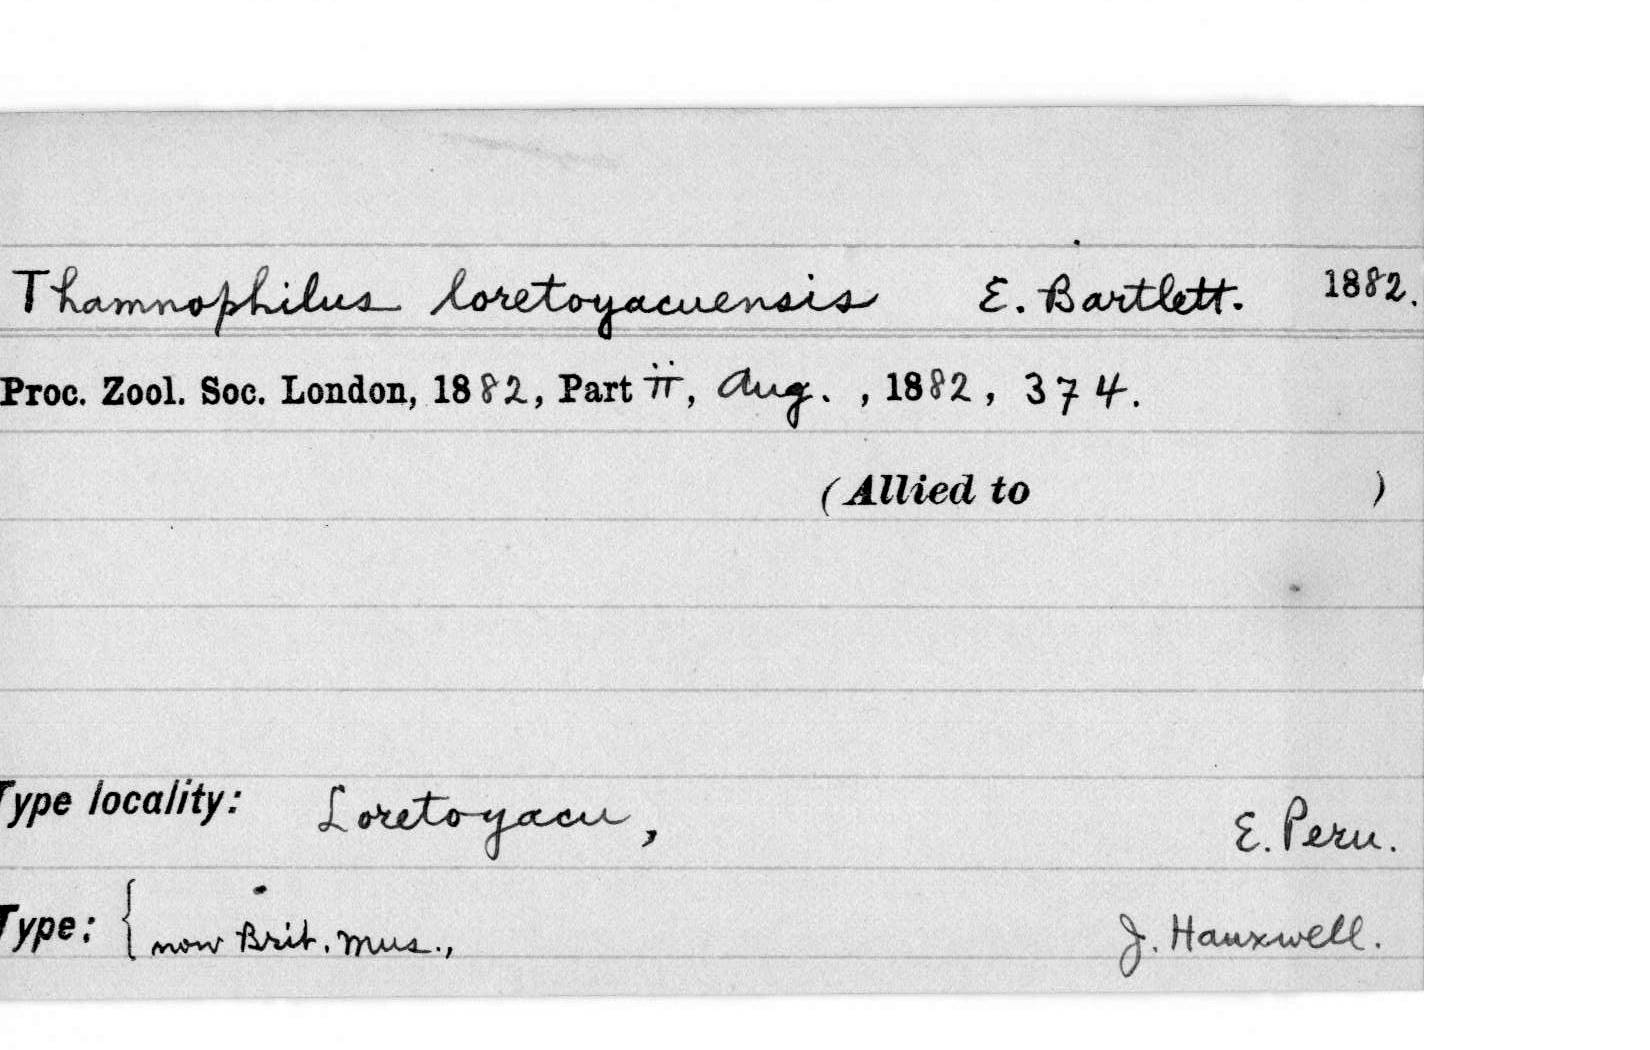 Thamnophilus loretoyacuensis E. Bartlett. 1882.
Proc. Zool. Soc. London, 1882, Part ii, Aug. , 1882, 374.
(Allied to )
Type locality: Loretoyacu, E. Peru.
Type: { now Brit. Mus., J. Hauxwell.